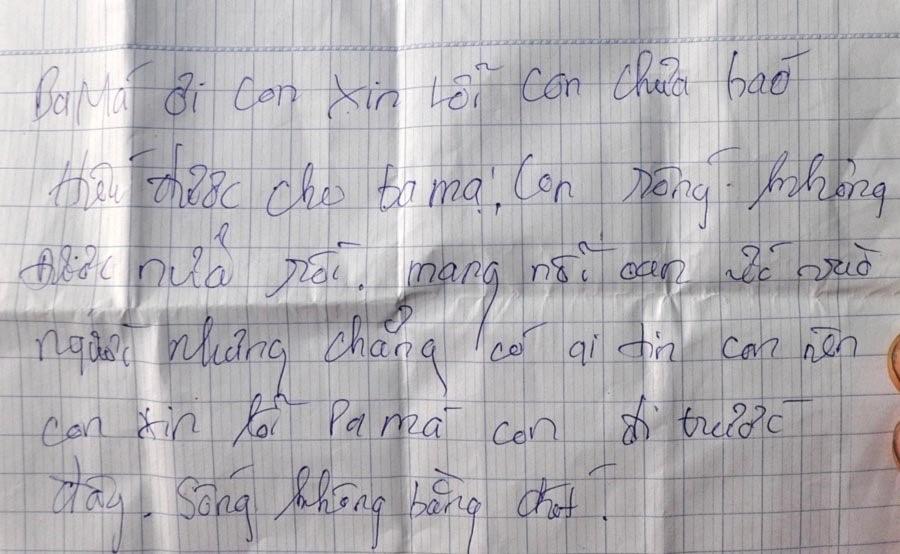 Ba Má ơi con xin lỗi con chưa báo
hiếu được cho ba má, Con sống không
được nữa rồi. mang nỗi oan ức vào
người nhưng chẳng có ai tin con nên
con xin lỗi Pa má con đi trước
đây. Sống không bằng chết.